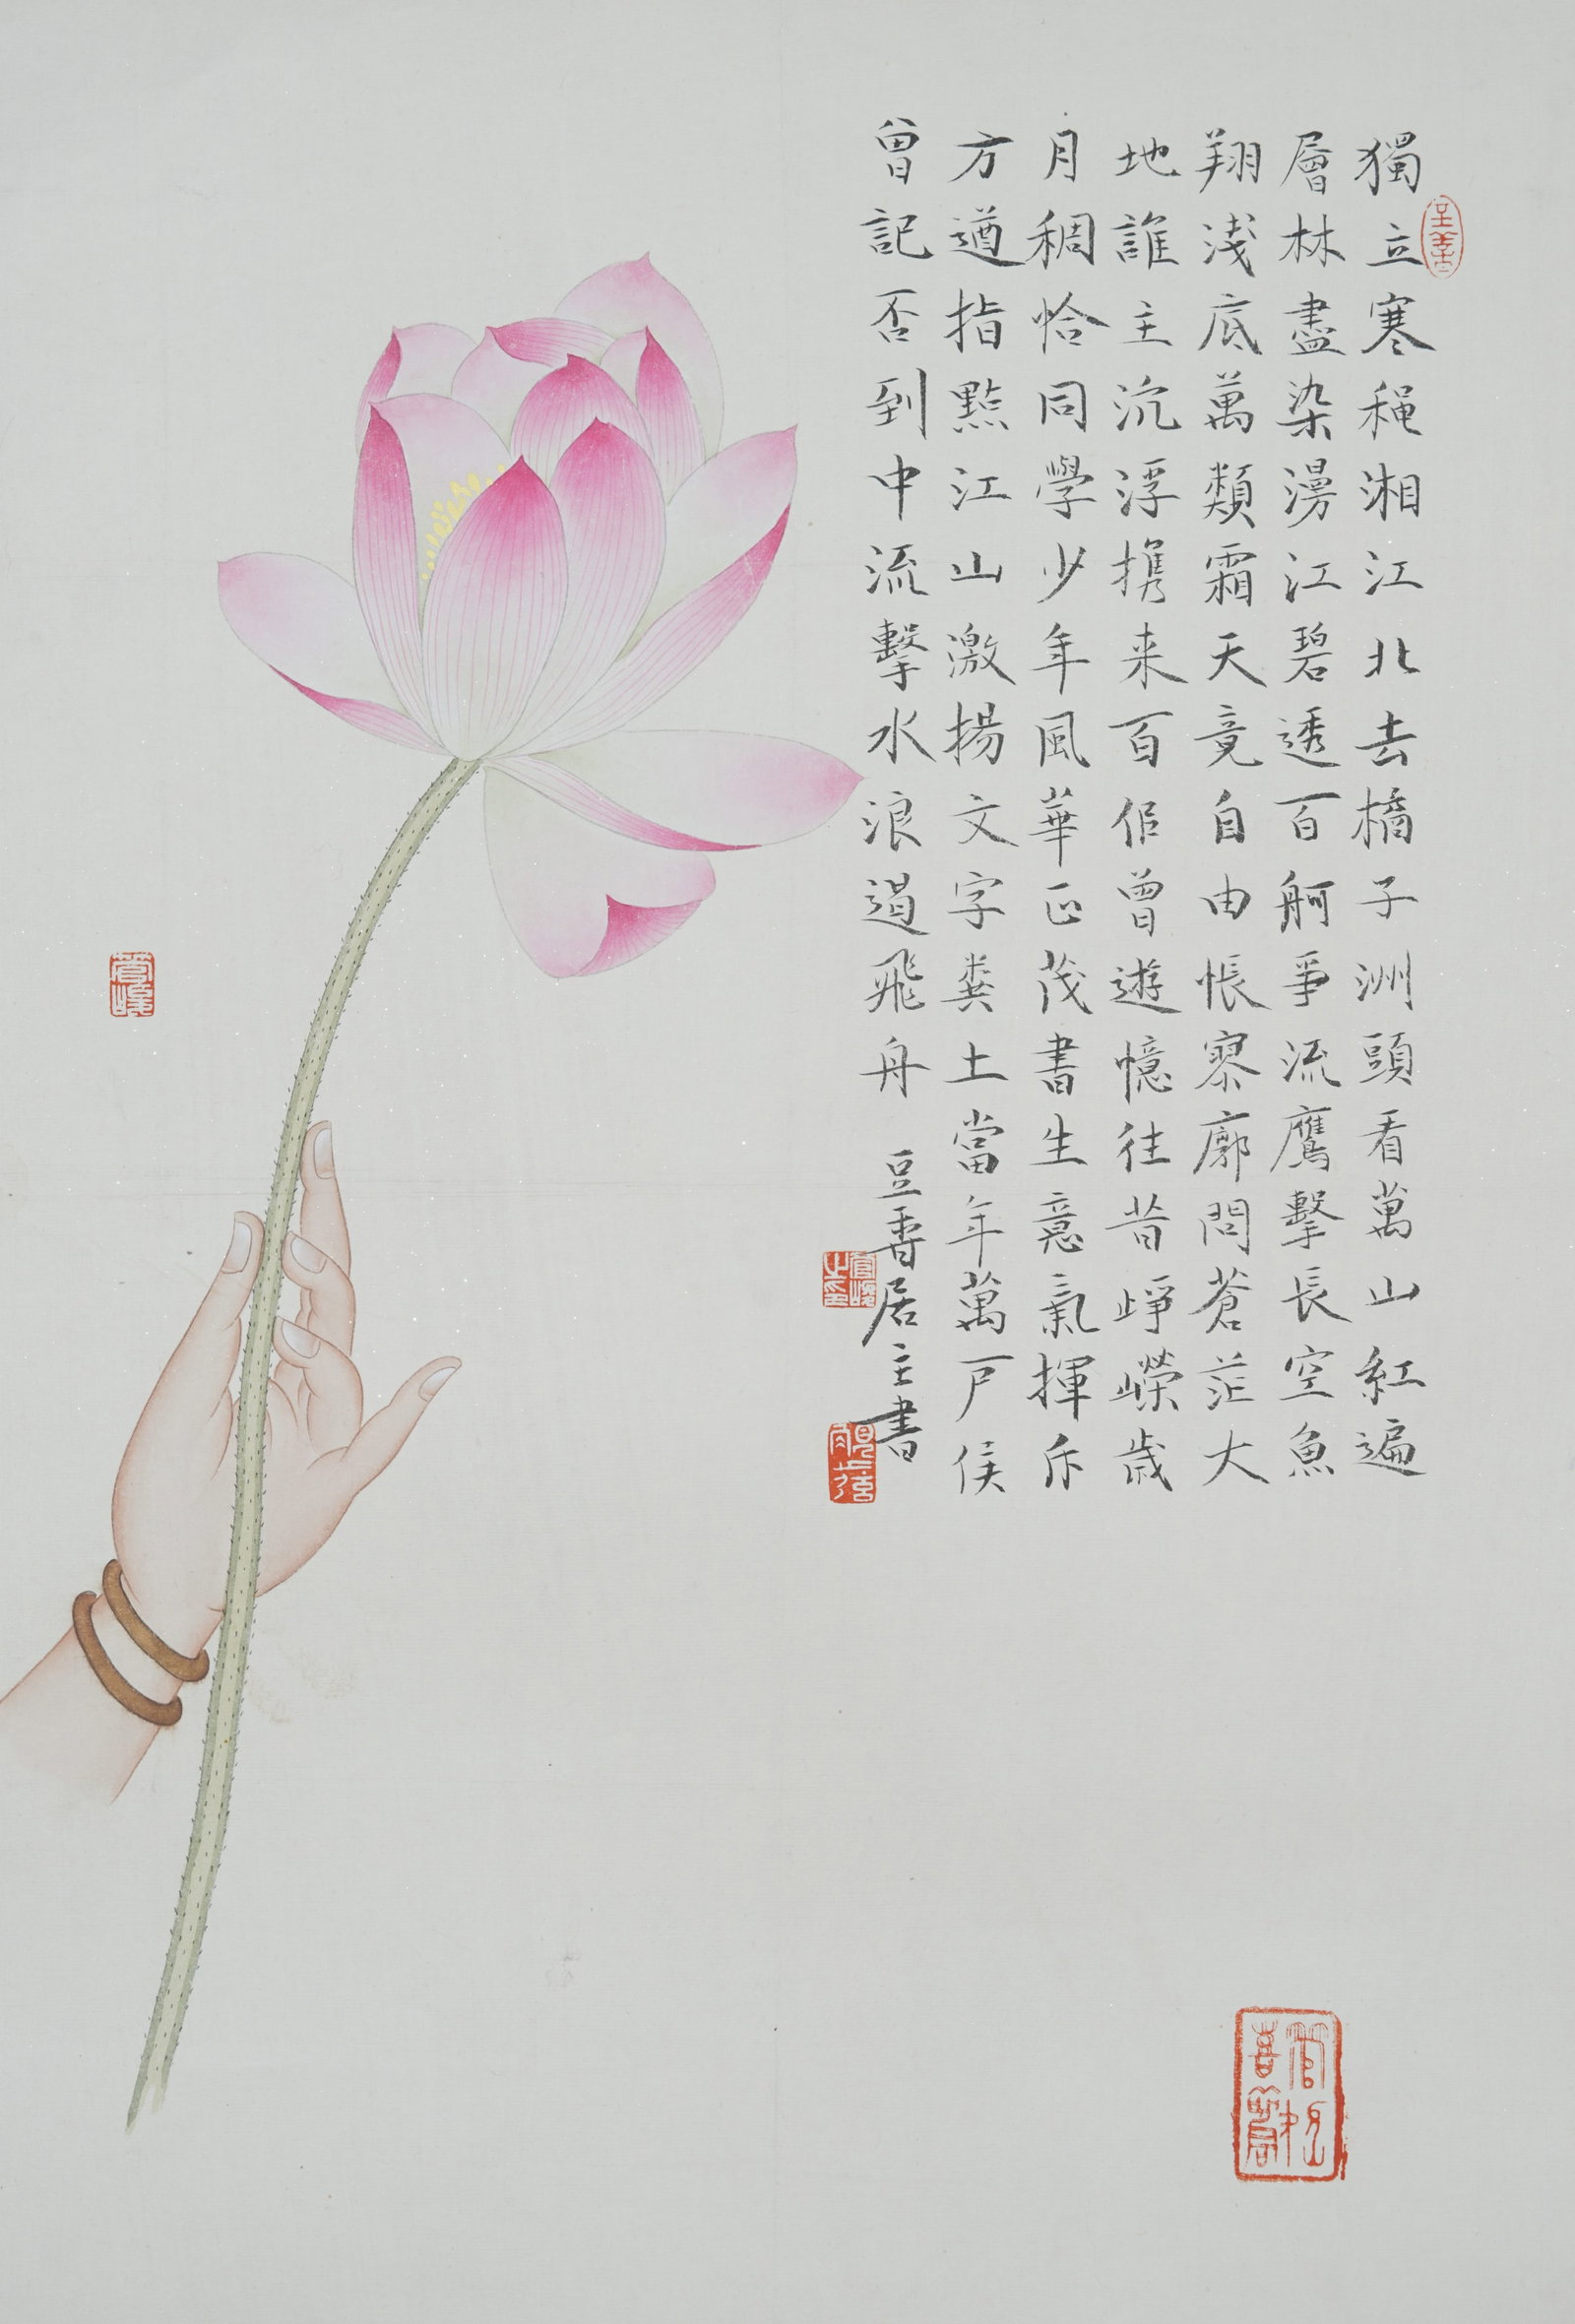 獨立寒穐湘江北去橘子洲頭看萬山紅遍
層林盡染漫江碧透百舸爭流鷹擊長空魚
翔淺底萬類霜天竟自由悵寥廓問蒼茫大
地誰主沉浮携来百侣曾遊憶往昔崢嶸歲
月稠恰同學少年風華正茂書生意氣揮斥
方遒指點江山激揚文字糞土當年萬戶侯
曾記否到中流擊水浪遏飛舟 豆香居主書
至善
管峻之印
管峻